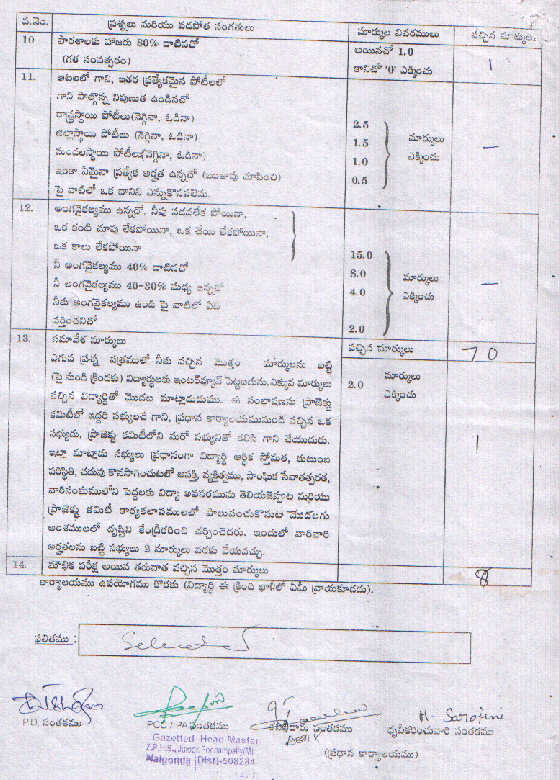 వ.నెం. ప్రశ్నలు మరియు పడపోత సంగతులు మార్కుల వివరములు వచ్చిన మార్కులు
10 పాఠశాలకు హాజరు 80% దాటినచో అయినచో 1.0 1
(గత సంవత్సరం) కానిచో '0' ఎక్కించు
11. ఆటలలో గాని, ఇతర ప్రత్యేకమైన పోటీలలో
గాని పాల్గొన్న నిపుణత ఉండినచో
రాష్ట్రస్థాయి పోటీలు(నెగ్గినా, ఓడినా) 2.5
జిల్లాస్థాయి పోటీలు (నెగ్గినా, ఓడినా) 1.5 మార్కులు —
మండలస్థాయి పోటీలు(నెగ్గినా, ఓడినా) 1.0 ఎక్కించు
ఇంకా ఏమైనా ప్రత్యేక అర్హత ఉన్నచో (ఋజువు చూపించి) 0.5
పై వాటిలో ఒక దానిని ఎన్నుకొనవలెను.
12. అంగవైకల్యము ఉన్నచో, నీవు నడవలేక పోయినా,
ఒక కంటి చూపు లేకపోయినా, ఒక చేయి లేకపోయినా,
ఒక కాలు లేకపోయినా 15.0
నీ అంగవైకల్యము 40% దాటినచో 8.0 మార్కులు
నీ అంగవైకల్యము మధ్య ఉన్నచో 4.0 ఎక్కించు —
నీకు అంగవైకల్యము ఉండి పై వాటిలో ఏది
వర్తించనిచో 2.0
13. సమావేశ మార్కులు వచ్చిన మార్కులు 70
ఎగువ ప్రశ్న పత్రములో నీకు వచ్చిన మొత్తం మార్కులను బట్టి 2.0 మార్కులు
(పై నుండి క్రిందకు) విద్యార్థులకు ఇంటర్వ్యూవ్ పెట్టబడును.ఎక్కువ మార్కులు ఎక్కించు
వచ్చిన విద్యార్థితో మొదట మాట్లాడుదుము. ఈ సంభాషణను ప్రాజెక్టు
కమిటీలో ఇద్దరి సభ్యులచే గాని, ప్రధాన కార్యాలయమునుండి వచ్చిన ఒక
సభ్యుడు, ప్రాజెక్టు కమిటీలోని మరో సభ్యునితో కలిసి గాని చేయుదురు. 1
ఇట్లా మాట్లాడు సభ్యులు ప్రధానంగా విద్యార్థి ఆర్థిక స్తోమత, కుటుంబ
పరిస్థితి, చదువు కొనసాగించుటలో ఆసక్తి, వ్యక్తిత్వము, సాంఘిక సేవాతత్పరత,
వారిసంఘములోని పెద్దలకు విద్యా అవసరమును తెలియజెప్పుట మరియు
ప్రాజెక్టు కమిటీ కార్యకలాపములలో పాలుపంచుకొనుట మొదలగు
అంశములలో దృష్టిని కేంద్రీకరించి చర్చించెదరు. ఇందులో వారివారి
అర్హతలను బట్టి సభ్యులు 2 మార్కులు వరకు వేయవచ్చు.
14. మౌఖిక పరీక్ష అయిన తరువాత వచ్చిన మొత్తం మార్కులు 8
కార్యాలయము ఉపయోగము కొరకు (విద్యార్థి ఈ క్రింది ఖాళీలో ఏమీ వ్రాయకూడదు).
ఫలితము : Selected
H. Sarojini
P.D. సంతకము సంతకము సంతకము ధృవీకరించువారి సంతకము
Gazetted Head Master
(ప్రధాన కార్యాలయము)
Nalgonda (Dist)-508284